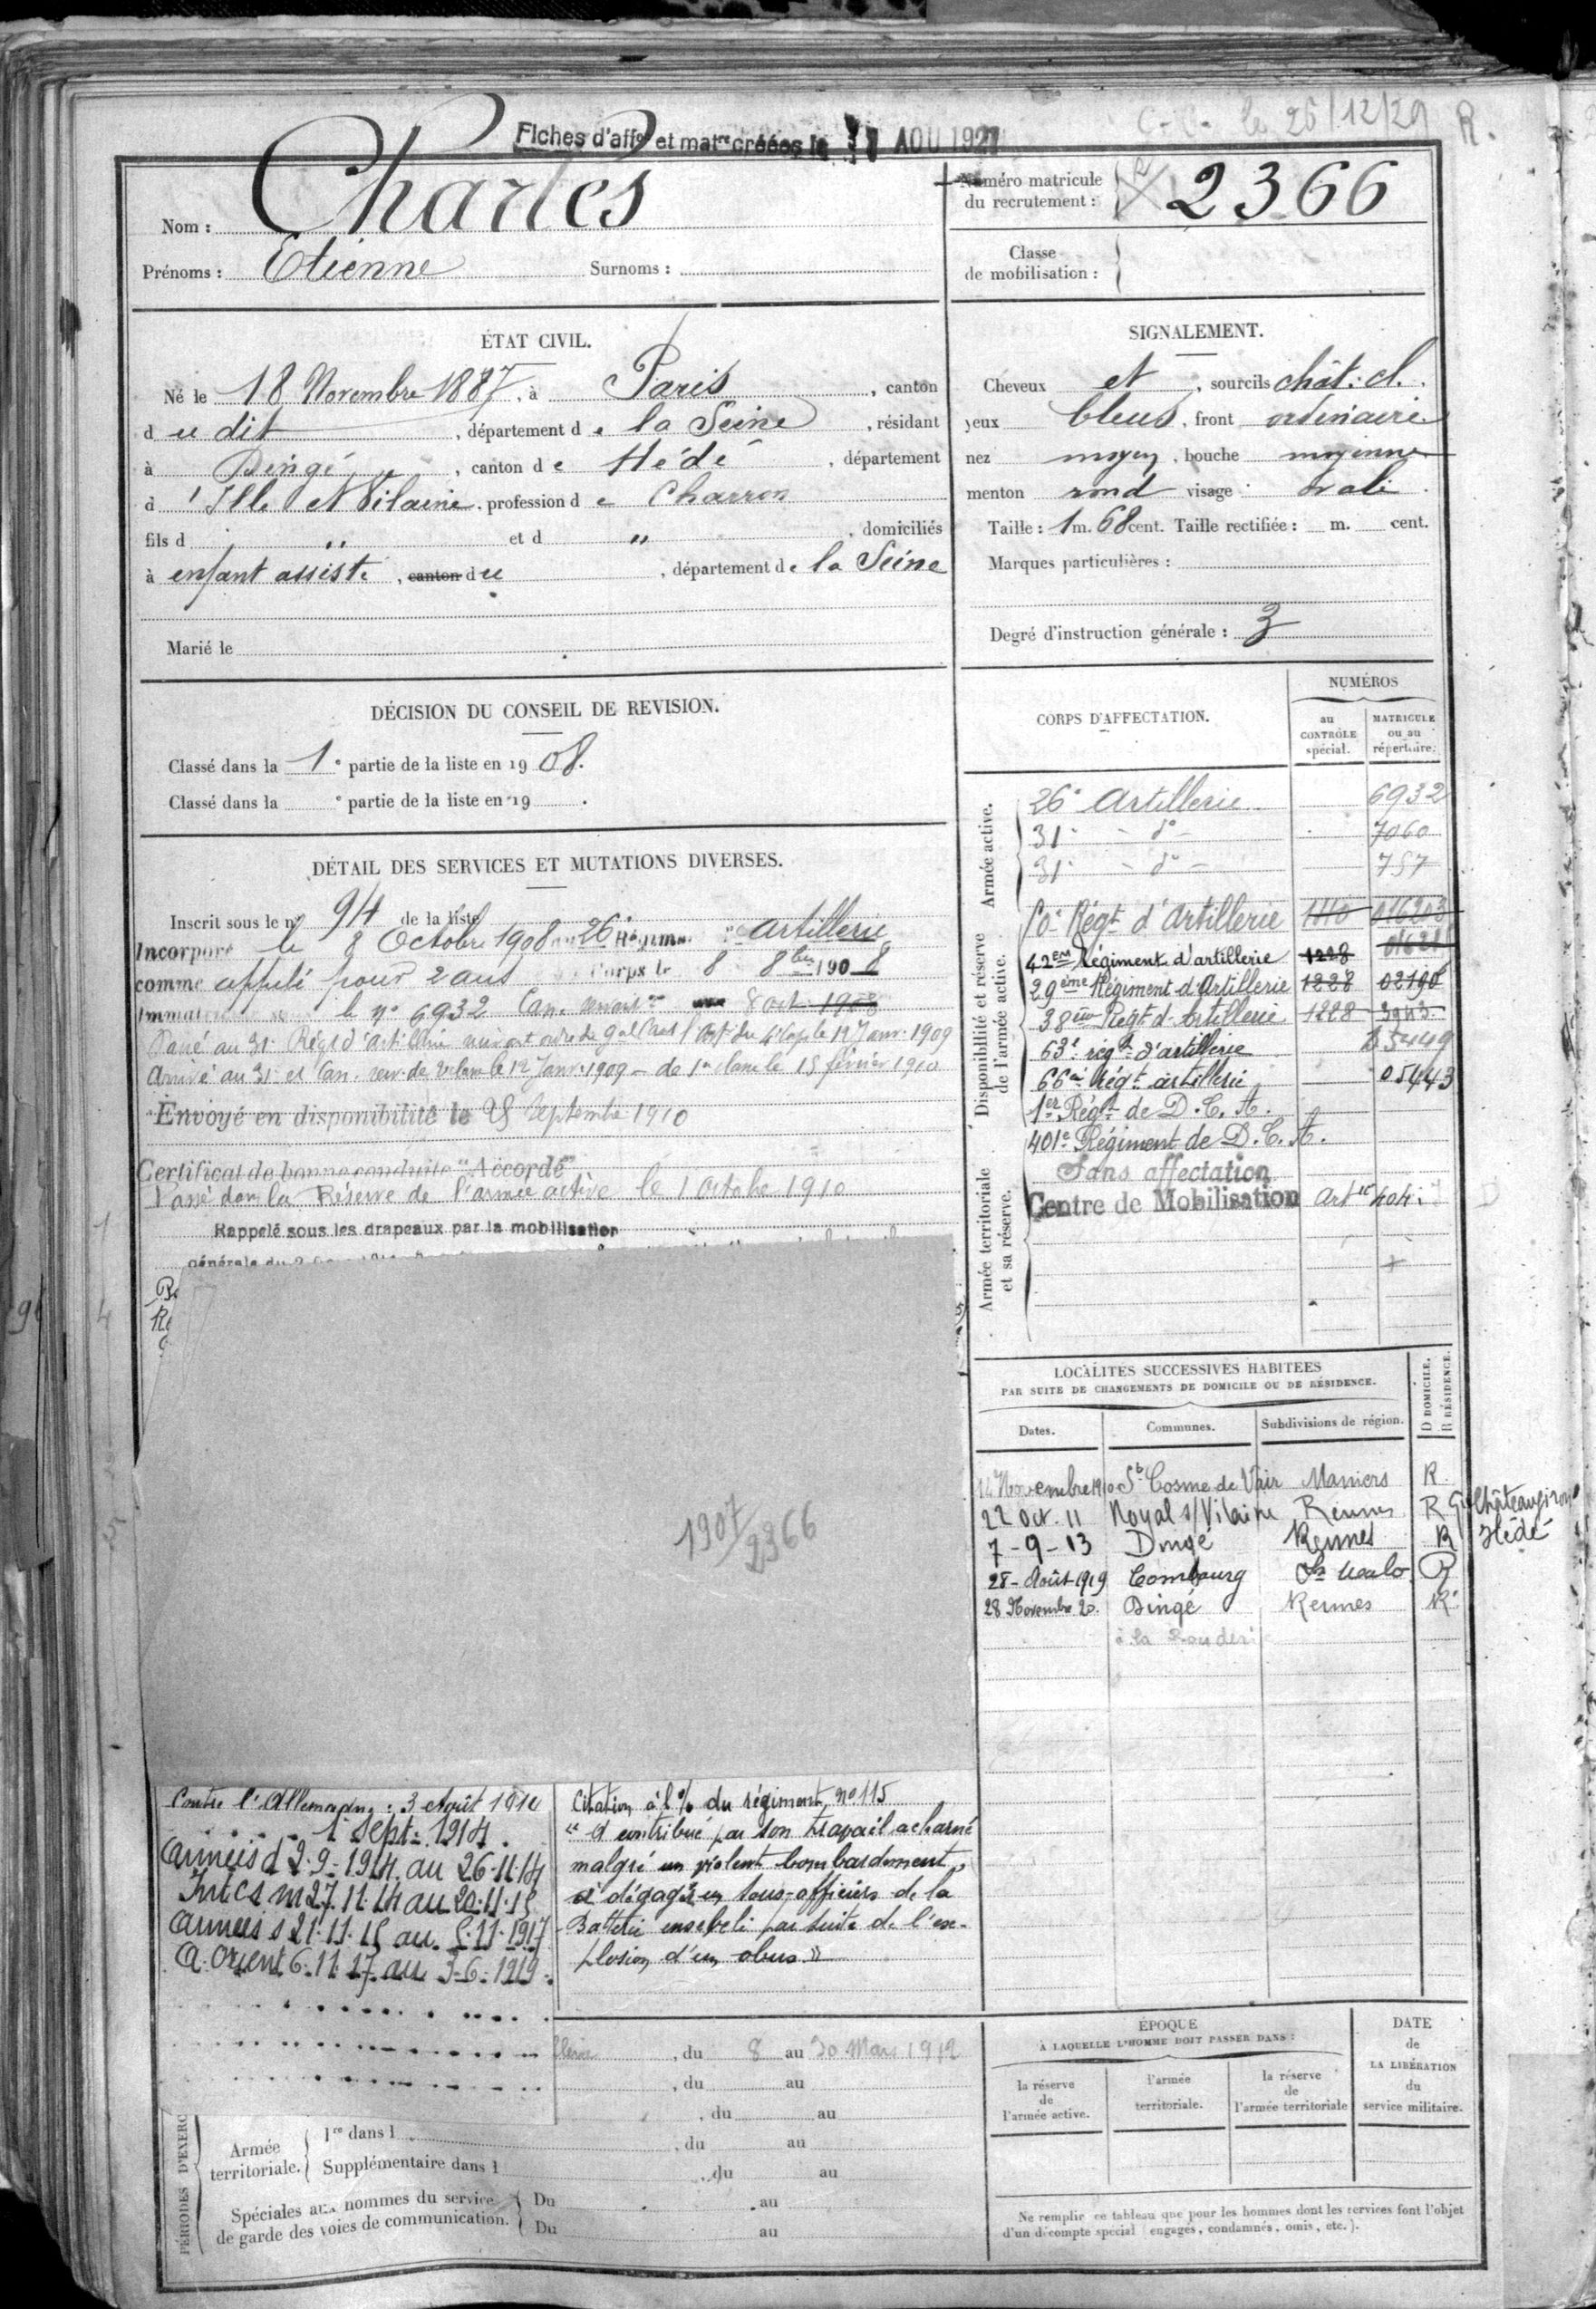 C.C. le 26/12/29 R.
Fiches d'affon et matre créées le AOU 1927
Nom : Charles
Prénoms : Etienne Surnoms :
Numéro matricule
du recrutement : 2366
Classe
de mobilisation :
ÉTAT CIVIL.
Né le 18 Novembre 1887, à Paris, canton
d u dit, département de la Seine, résidant
à Dingé, canton de Hédé, département
d'Ille et Vilaine, profession de Charron
fils d " et d ", domiciliés
à enfant assisté, canton du, département de la Seine
Marié le
SIGNALEMENT.
Cheveux et, sourcils chât. cl.
yeux bleus, front ordinaire
nez moyen, bouche moyenne
menton rond visage ovale.
Taille : 1 m. 68 cent. Taille rectifiée : m. cent.
Marques particulières :
Degré d'instruction générale : 3
DÉCISION DU CONSEIL DE REVISION.
Classé dans la 1e partie de la liste en 1908.
Classé dans la e partie de la liste en 19 .
DÉTAIL DES SERVICES ET MUTATIONS DIVERSES.
Inscrit sous le no 94 de la liste
Incorporé le 8 Octobre 1908 au 26e Régiment d'Artillerie
comme appelé pour 2 ans Corps le 8 8bre 1908
le no 6932 Can. servant 8 oct. 1908
Passé au 31e Régt d'artillerie suivant ordre du Gal Cmdt l'Artie du 4e Corps le 12 Janv. 1909
Arrivé au 31e et Can. serv. de 2e classe le 12 Janv. 1909 - de 1re classe le 15 février 1910
Envoyé en disponibilité le 25 Septembre 1910
Certificat de bonne conduite "Accordé"
Passé dans la Réserve de l'armée active le 1 Octobre 1910
Rappelé sous les drapeaux par la mobilisation
générale du 2
1907/2366
CORPS D'AFFECTATION.
NUMÉROS
au
CONTRÔLE
spécial.
MATRICULE
ou au
répertoire.
Armée active.
26e Artillerie 6932
31e - do - 7060
31e - do - 757
Disponibilité et réserve
de l'armée active.
10e Régt d'Artillerie 1110 016203
42em Régiment d'artillerie 1228
29ème Régiment d'Artillerie 1228 02190
38ème Regt d'Artillerie 1228 3943
63e régt d'artillerie 25449
66e régt artillerie 05443
1er Régt de D.C.A.
401e Régiment de D.C.A.
Armée territoriale
et sa réserve.
Sans affectation
Centre de Mobilisation Artie 404
LOCALITÉS SUCCESSIVES HABITÉES
PAR SUITE DE CHANGEMENTS DE DOMICILE OU DE RÉSIDENCE.
Dates. Communes. Subdivisions de région. D DOMICILE. R RÉSIDENCE.
14 Novembre 1910 St Cosme de Vair Mamers R.
22 Oct. 11 Noyal s/Vilaine Rennes R Châteaugiron
7-9-13 Dingé Rennes R Hédé
28-Août-1919 Combourg St Malo R
28 Novembre 20. Dingé Rennes R.
à la
Contre l'Allemagne : 3 Août 1914
1 Sept. 1914.
Armées d 2.9.1914 au 26.11.14
Int CS m 27.11.14 au 20.11.15
Armées s 21.11.15 au 5.11.1917
A. Orient 6.11.17 au 3-6-1919.
Citation à l'o/o du régiment, no 115
"A contribué par son travail acharné
malgré un violent bombardement,
à dégager un sous-officiers de la
Batterie enseveli par suite de l'ex-
plosion d'un obus."
llerie, du 8 au 30 Mars 1912
, du au
, du au
PÉRIODES D'EXERC
Armée
territoriale.
1re dans l , du au
Supplémentaire dans l , du au
Spéciales aux hommes du service
de garde des voies de communication.
Du au
Du au
ÉPOQUE
À LAQUELLE L'HOMME DOIT PASSER DANS :
la réserve
de
l'armée active.
l'armée
territoriale.
la réserve
de
l'armée territoriale
DATE
de
LA LIBÉRATION
du
service militaire.
Ne remplir ce tableau que pour les hommes dont les services font l'objet
d'un décompte spécial (engagés, condamnés, omis, etc.).